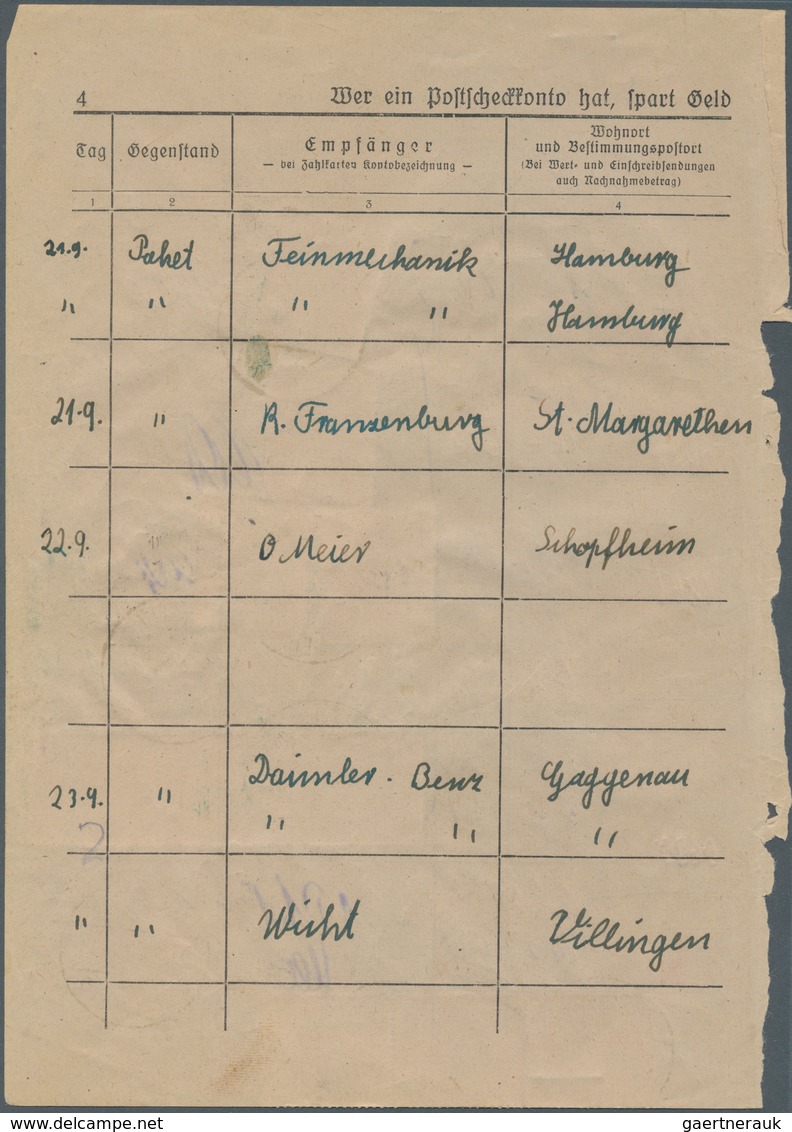 4 Wer ein Postscheckkonto hat, spart Geld
Tag Gegenstand Empfänger
— bei Zahlkarten Kontobezeichnung —
Wohnort
und Bestimmungspostort
(Bei Wert- und Einschreibsendungen
auch Nachnahmebetrag)
1 2 3 4
21.9. Paket Feinmechanik Hamburg
" " " " Hamburg
21.9. " R. Franzenburg St. Margarethen
22.9. O Meier Schopfheim
23.9. " Daimler - Benz Gaggenau
" " "
2
" " Wicht Villingen
www.delcampe.net gaertnerauk